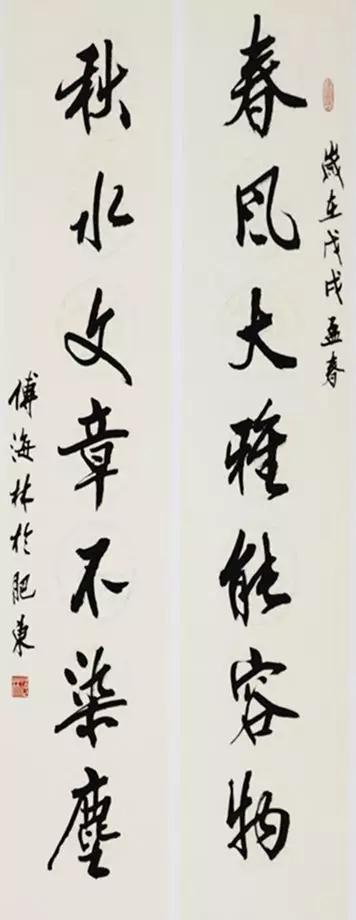 歲在戊戌孟春
春風大雅能容物
秋水文章不染塵
傅海林於肥東